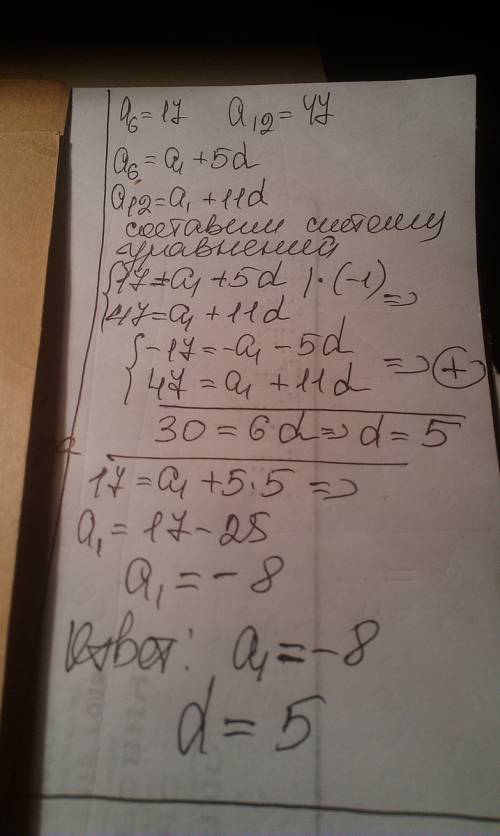 a₆ = 17 a₁₂ = 47
a₆ = a₁ + 5d
a₁₂ = a₁ + 11d
составим систему
уравнений
{17 = a₁ + 5d |·(-1) =>
{47 = a₁ + 11d
{-17 = -a₁ - 5d => ⊕
{47 = a₁ + 11d
30 = 6d => d = 5
17 = a₁ + 5·5 =>
a₁ = 17 - 25
a₁ = -8
Ответ: a₁ = -8
d = 5